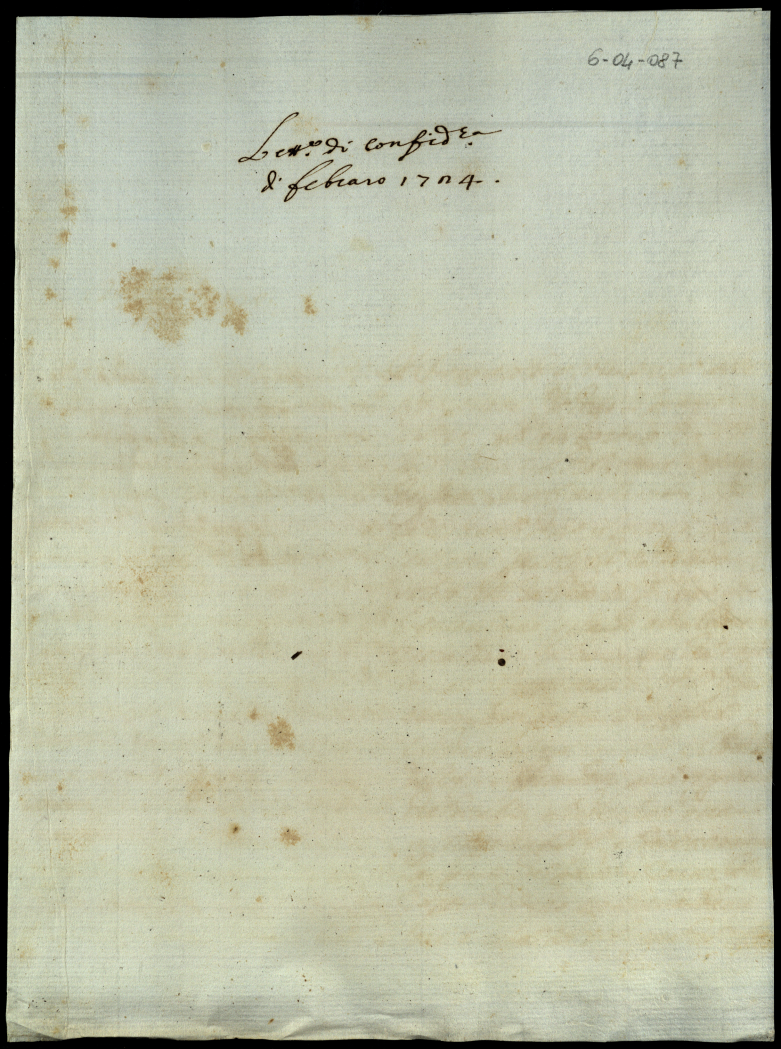 6-04-087
Lett.e di confid.za
di febraro 1704.